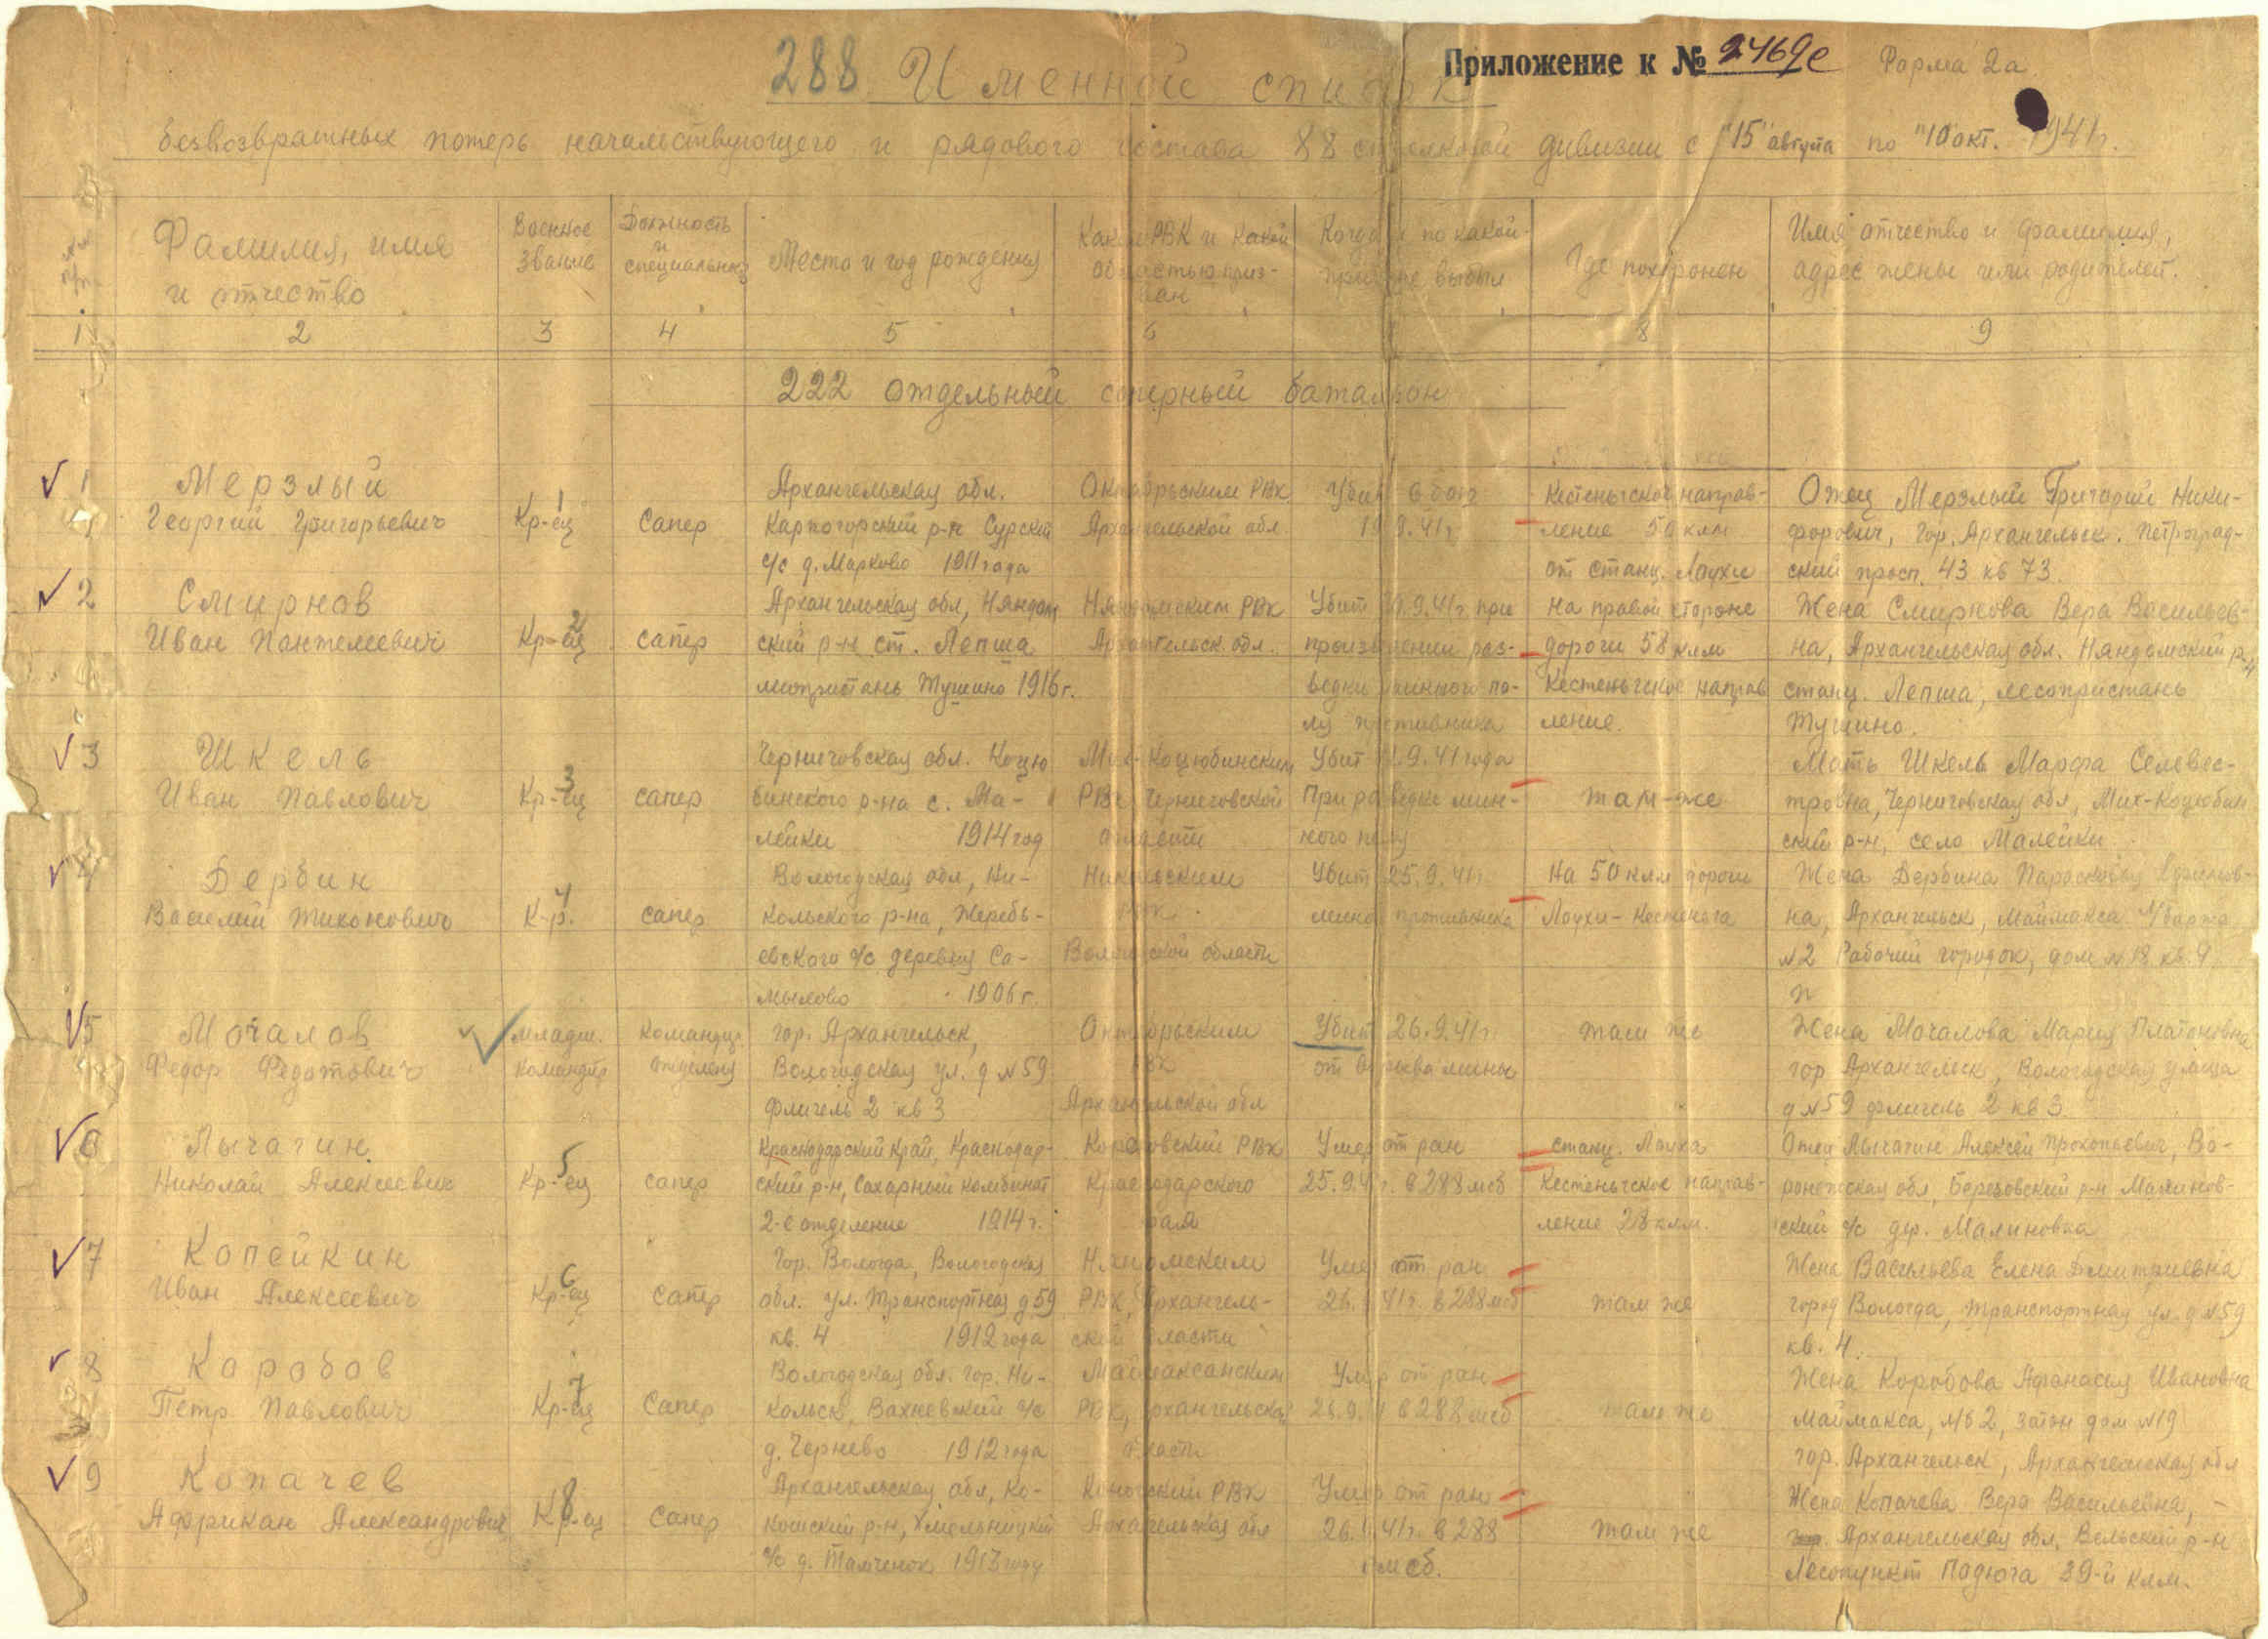 288 Именной список
Приложение к № 2469с Форма 2а
безвозвратных потерь начальствующего и рядового состава 88 стрелковой дивизии с "15" августа по "10" окт. 1941 г.
№№ п/п
Фамилия, имя
и отчество
Военное
звание
Должность
и
специальность
Место и год рождения
Каким РВК и какой
областью приз-
ван
Когда и по какой
причине выбыл
Где похоронен
Имя отчество и фамилия,
адрес жены или родителей.
1 2 3 4 5 6 8 9
222 отдельный саперный батальон
1
Мерзлый
Георгий Григорьевич
Кр-ец 1
Сапер
Архангельская обл.
Карпогорский р-н Сурский
с/с д. Марково 1911 года
Октябрьским РВК
Архангельской обл
Убит в бою
19.8.41 г
Кестеньгское направ-
ление 50 клм
от станц. Лоухи
Отец Мерзлый Григорий Ники-
форович, Гор. Архангельск. Петроград-
ский просп. 43 кв 73.
2
Смирнов
Иван Пантелеевич
Кр-ец 2
сапер
Архангельская обл, Няндом
ский р-н ст. Лепша
лесопристань Тушино 1916 г.
Няндомским РВК
Архангельск. обл.
Убит 9.41 г при
произведении раз-
ведки минного по-
ля противника
на правой стороне
дороги 58 клм
Кестеньгское направ
ление.
Жена Смирнова Вера Васильев-
на, Архангельская обл. Няндомский р-н
станц. Лепша, лесопристань
Тушино.
3
Шкель
Иван Павлович
Кр-ец 3
сапер
Черниговская обл. Коцю
бинского р-на с. Ма-
лейки 1914 год
Мих-Коцюбинским
РВК Черниговской
области
Убит 9.41 года
При разведке мин-
ного поля
там-же
Мать Шкель Марфа Селевес-
тровна, Черниговская обл, Мих-Коцюбин
ский р-н, село Малейки
4
Дербин
Василий Тихонович
К-р. 4
сапер
Вологодская обл, Ни-
кольского р-на, Жеребь-
евского с/с деревня Са-
мылово 1906 г.
Никольским
РВК.
Вологодской области
Убит 25.9.41 г
миной противника
На 50 клм дороги
Лоухи-Кестеньга
Жена Дербина Парасковья
на, Архангельск, Маймакса
№2 Рабочий городок, дом №18 кв. 9
5
Мочалов
Федор Федотович
младш.
командир
командир
отделения
гор. Архангельск,
Вологодская ул. д №59
флигель 2 кв 3
Октябрьским
РВК
Архангельской обл
Убит 26.9.41 г.
от взрыва мины
там же
Жена Мочалова Мария Платоновна
гор Архангельск, Вологодская улица
д №59 флигель 2 кв 3
6
Лычагин
Николай Алексеевич
Кр-ец 5
сапер
Краснодарский Край, Краснодар-
ский р-н, Сахарный комбинат
2-е отделение 1914 г.
РВК
Краснодарского
края
Умер от ран
25.9.41 г. в 288 мсб
станц. Лоуха
Кестеньгское направ-
ление 28 клм.
Отец Лычагин Алексей Прокопьевич, Во-
ронежская обл, Березовский р-н Малинов-
ский с/с дер. Малиновка
7
Копейкин
Иван Алексеевич
Кр-ец 6
сапер
Гор. Вологда, Вологодская
обл. ул. Транспортная д 59
кв. 4 1912 года
Няндомским
РВК, Архангель-
ской области
Умер от ран
26.9.41 г. в 288 мсб
там же
Жена Васильева Елена Дмитриевна
город Вологда, Транспортная ул. д №59
кв. 4.
8
Коробов
Петр Павлович
Кр-ец 7
Сапер
Вологодская обл. гор. Ни-
кольск, Вахневский с/с
д. Чернево 1912 года
Маймаксанским
РВК, Архангельская
область
Умер от ран
26.9.41 в 288 мсб
там же
Жена Коробова Афанасия Ивановна
Маймакса, л/б 2, затон дом №19
гор. Архангельск, Архангельская обл
9
Копачев
Африкан Александрович
Кр-ец 8
сапер
Архангельская обл, Ко-
ношский р-н, Хмельницкий
с/с д. Топоченок 1913 году
Коношский РВК
Архангельская обл
Умер от ран
26.9.41 г. в 288
мсб.
там же
Жена Копачева Вера Васильевна,
Архангельская обл, Вельский р-н
Лесопункт Подюга 39-й клм.